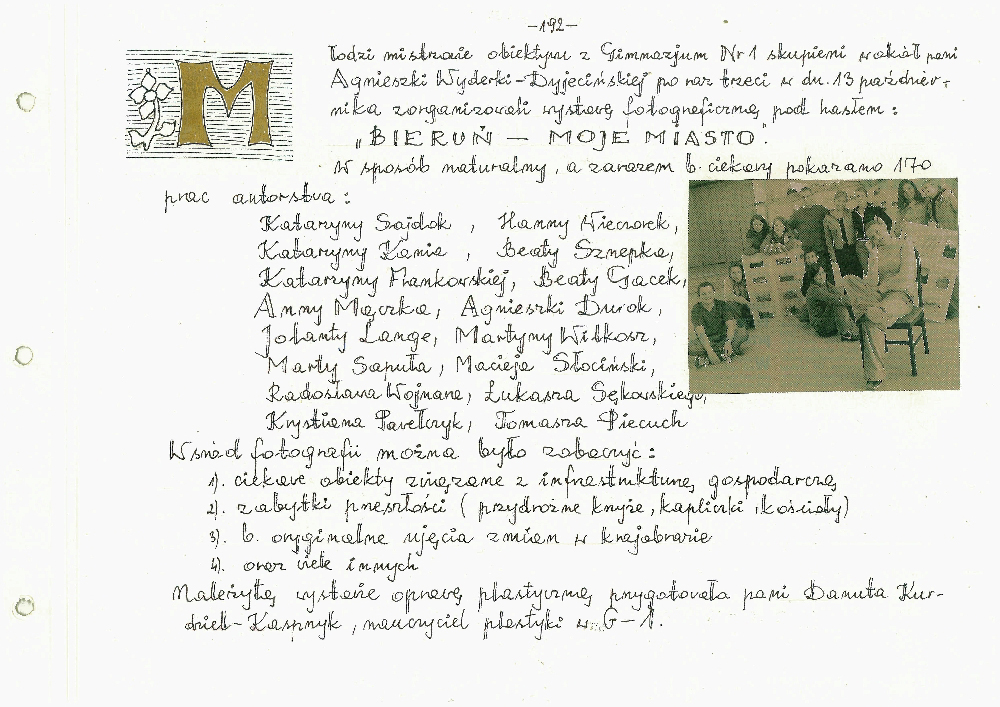 -192-
M łodzi mistrzowie obiektywu z Gimnazjum Nr 1 skupieni wokół pani
Agnieszki Wyderki-Dyjecińskiej po raz trzeci w dn. 13 paździer-
nika zorganizowali wystawę fotograficzną pod hasłem:
„BIERUŃ — MOJE MIASTO".
W sposób naturalny, a zarazem b. ciekawy pokazano 170
prac autorstwa:
Katarzyny Sajdok, Hanny Wieczorek,
Katarzyny Kania, Beaty Sznepka,
Katarzyny Mankowskiej, Beaty Gacek,
Anny Mączka, Agnieszki Durok,
Jolanty Lange, Martyny Witkosz,
Marty Saputa, Macieja Słociński,
Radosława Wojnana, Łukasza Sękowskiego,
Krystiana Pawełczyk, Tomasza Piecuch
Wśród fotografii można było zobaczyć:
1). ciekawe obiekty związane z infrastrukturą gospodarczą
2). zabytki przeszłości (przydrożne krzyże, kapliczki, kościoły)
3). b. oryginalne ujęcia zmian w krajobrazie
4). oraz wiele innych
Należytą wystawie oprawę plastyczną przygotowała pani Danuta Kur-
dziel-Kasprzyk, nauczyciel plastyki w G-1.